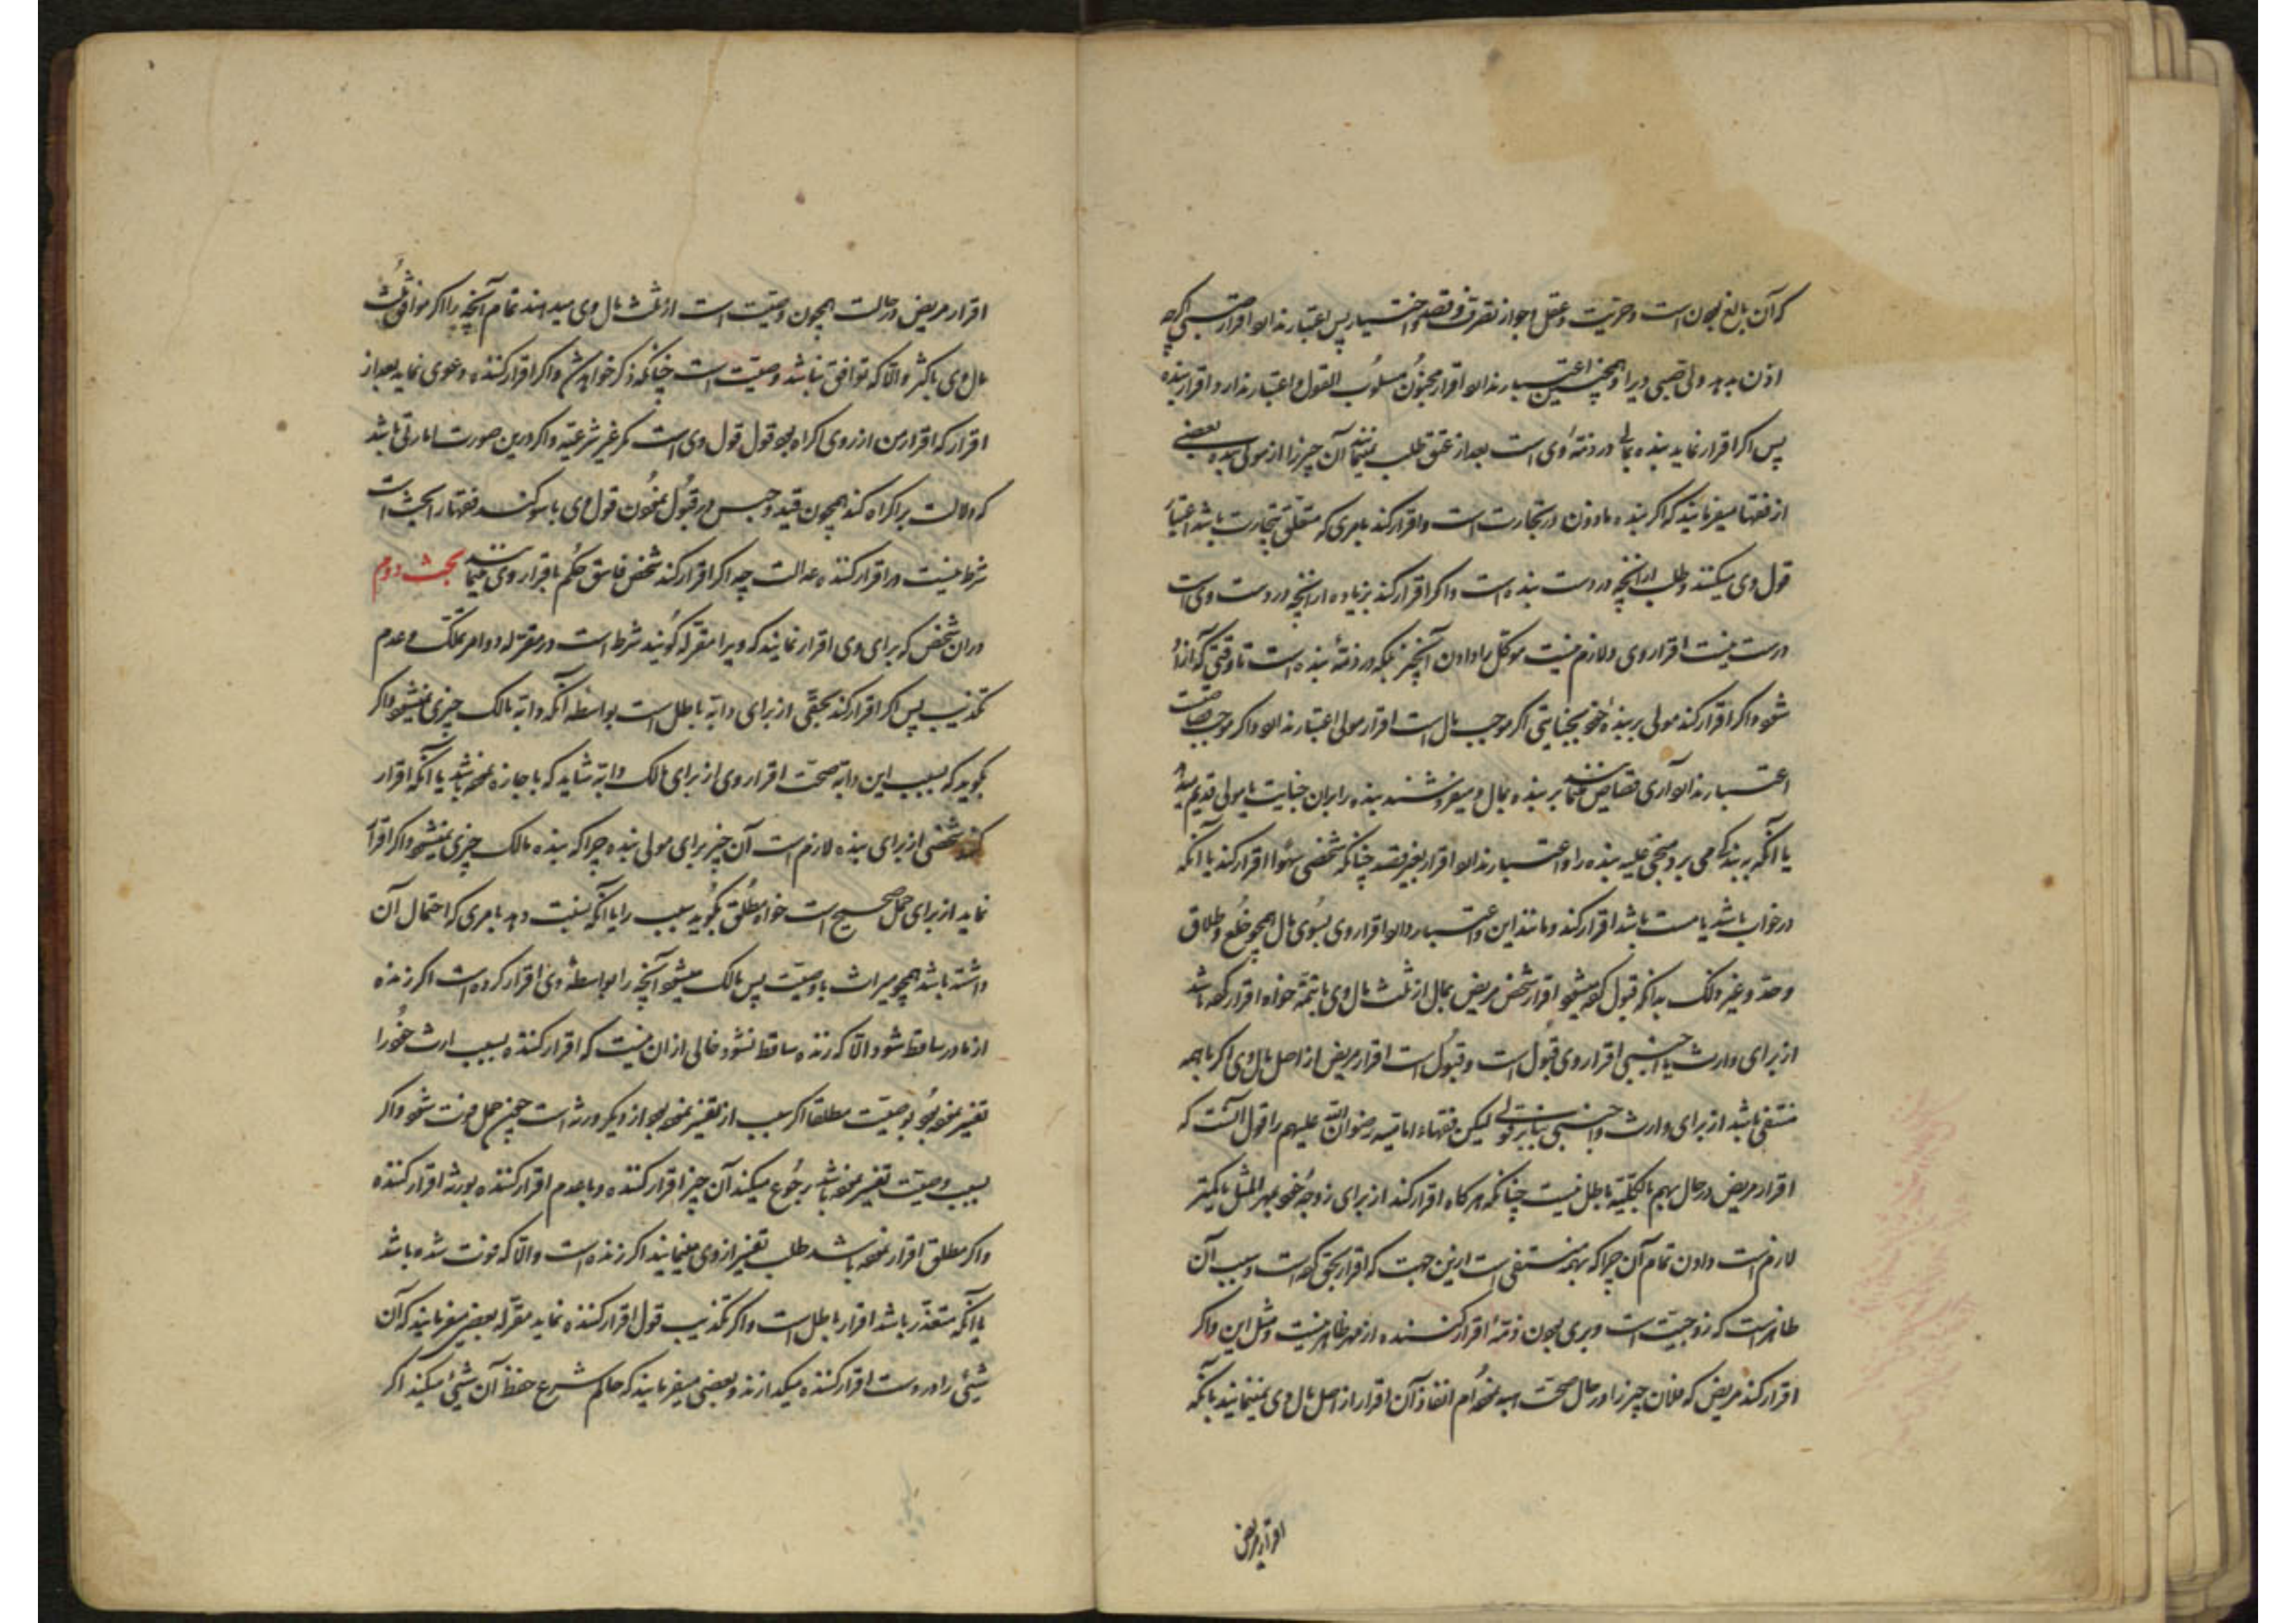 که آن بالغ بودن است و حریت و عقل و جواز تصرف و قصد و اختیار پس اعتبار ندارد اقرار صبی اگرچه
اذن بدهد ولی صبی ویرا و همچنین اعتبار ندارد اقرار مجنون مسلوب القول و اعتبار ندارد اقرار بنده
پس اگر اقرار نماید بنده بمالی در ذمهٔ وی است بعد از عتق طلب مینمایند آن چیز را از مولی بنده بعضی
از فقها میفرمایند که اگر بنده ماذون در تجارت است و اقرار کند بامری که متعلق بتجارت باشد اعتبار
قول وی میکنند و طلب از آنچه در دست بنده است و اگر اقرار کند بزیاده از آنچه در دست وی است
درست نیست اقرار وی و لازم نیست موکل را دادن آنچیز بلکه در ذمهٔ بنده است تا وقتی که آزاد
شود و اگر اقرار کند مولی بر بندهٔ خود بجنایتی اگر موجب مال است اقرار مولی اعتبار ندارد و اگر موجب قصاص است
اعتبار ندارد آری قصاص بر بنده بمال و میفروشند بنده را بران جنایت یا مولی قدیم میدهد
یا آنکه بر بندگی می برد مجنی علیه بنده را و اعتبار ندارد اقرار بغیر قصد چنانکه شخصی سهوا اقرار کند یا آنکه
در خواب باشد یا مست باشد اقرار کند و مانند این و اعتبار دارد اقرار وی بسوی مال همچو خلع و طلاق
و حد و غیر ذلک بدانکه قبول کرده میشود اقرار شخص مریض بمال از ثلث مال وی با تهمة خواه اقرار کرده باشد
از برای وارث یا اجنبی اقرار وی قبول است و قبول است اقرار مریض از اصل مال وی اگر تهمه
منتفی باشد از برای وارث و اجنبی بنابر قولی لیکن فقهاء امامیه رضوان الله علیهم را قول آنست که
اقرار مریض در حال تهم بالکلیه باطل نیست چنانکه هرگاه اقرار کند از برای زوجهٔ خود بمهر المثل یا کمتر
لازم است دادن تمام آن چراکه تهمه منتفی است ازین جهت که اقرار بحق کرده است و سبب آن
ظاهر است که زوجیت است و بری بودن ذمهٔ اقرار کننده از مهر ظاهر نیست و مثل این و اگر
اقرار کند مریض که فلان چیز را در حال صحت هبه نموده ام انفاذ آن اقرار از اصل مال وی مینمایند بانکه
اقرار مریض
اقرار مریض در حالت همچون وصیت است از ثلث مال وی میدهند تمام آنچه را اگر موافق ثلث
مال وی یا کمتر و الّا که توافق نباشد وصیت است چنانکه ذکر خواهد شد و اگر اقرار کننده دعوی نماید بعد از
اقرار که اقرار من از روی اکراه بود قول قول وی است مگر غیر شرعیه و اگر درین صورت امارتی باشد
که دلالت بر اکراه کند همچون قید و حبس در قبول نمودن قول وی با سوگند فقها را بحث است
شرط نیست در اقرار کننده عدالت چه اگر اقرار کند شخص فاسق حکم باقرار وی مینمایند بحث دوم
در ان شخص که برای وی اقرار نمایند که ویرا مقرله گویند شرط است در مقرله دو امر تملک و عدم
تکذیب پس اگر اقرار کند بحقی از برای دابه باطل است بواسطه آنکه دابه مالک چیزی نمیشود و اگر
بگوید که بسبب این دابه صحت اقرار وی از برای مالک دابه شاید که باجاره نموده باشد یا آنکه اقرار
کند شخصی از برای بنده لازم است آن چیز برای مولی بنده چراکه بنده مالک چیزی نمیشود و اگر اقرار
نماید از برای حمل صحیح است خواه مطلق بگوید سبب را یا آنکه نسبت دهد بامری که احتمال آن
داشته باشد همچو میراث یا وصیت پس مالک میشود آنچه را بواسطهٔ وی اقرار کرده است اگر زنده
از مادر ساقط شود و الّا که زنده ساقط نشود خالی ازان نیست که اقرار کننده بسبب ارث خود را
تفسیر نموده بود بوصیت مطلقا اگر سبب از تفسیر نموده بود از دیگر ورثه است چون حمل فوت شود و اگر
بسبب وصیت تفسیر نموده باشد رجوع میکند آن چیز اقرار کننده و با عدم اقرار کننده بورثه اقرار کننده
و اگر مطلق اقرار نموده باشد طلب تفسیر از وی مینمایند اگر زنده است و الّا که فوت شده باشد
یا آنکه متعذر باشد اقرار باطل است و اگر تکذیب قول اقرار کننده نماید مقرله بعضی میفرمایند که آن
شیٔ را در دست اقرار کننده میگذارند و بعضی میفرمایند که حاکم شرع حفظ آن شیٔ میکند اگر